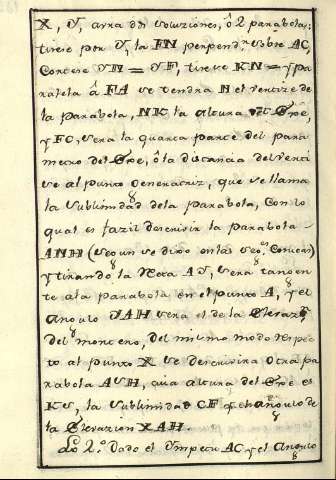 X, Y, avra dos soluziones, ô 2 parabolas;
tirese por Y, la FN perpend.ʳ sobre AC,
Cortese YN = YF, tirese KN = y pa-
ralela â FA se tendra N el vertize de
la parabola, NK la altura del
y FC, sera la quarta parte del para
metro del ô la distancia del verti
se al punto Generatriz, que se llama
la Sublimidad de la parabola, Con lo
qual es fazil descrivir la parabola
ANH (segun se dixo en las Conicas)
y tirando la Recta AY, sera tangen
te ala parabola en el punto A, y el
angulo YAH sera el de la Elevaz.ⁿ
del mortero, del mismo modo respec
to al punto X se descrivira otra pa
rabola ASH, cuia altura del es
KS, la sublimidad CF y el angulo de
la Elevazion XAH.
Lo 2.º Dado el Ympetu AC y el Angulo